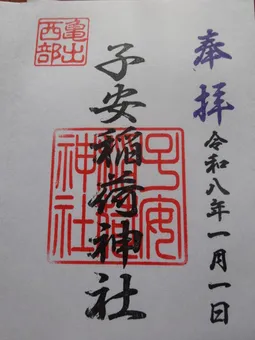 奉拝
令和八年一月一日
子安稲荷神社
亀出
西部
子安
稲荷
神社